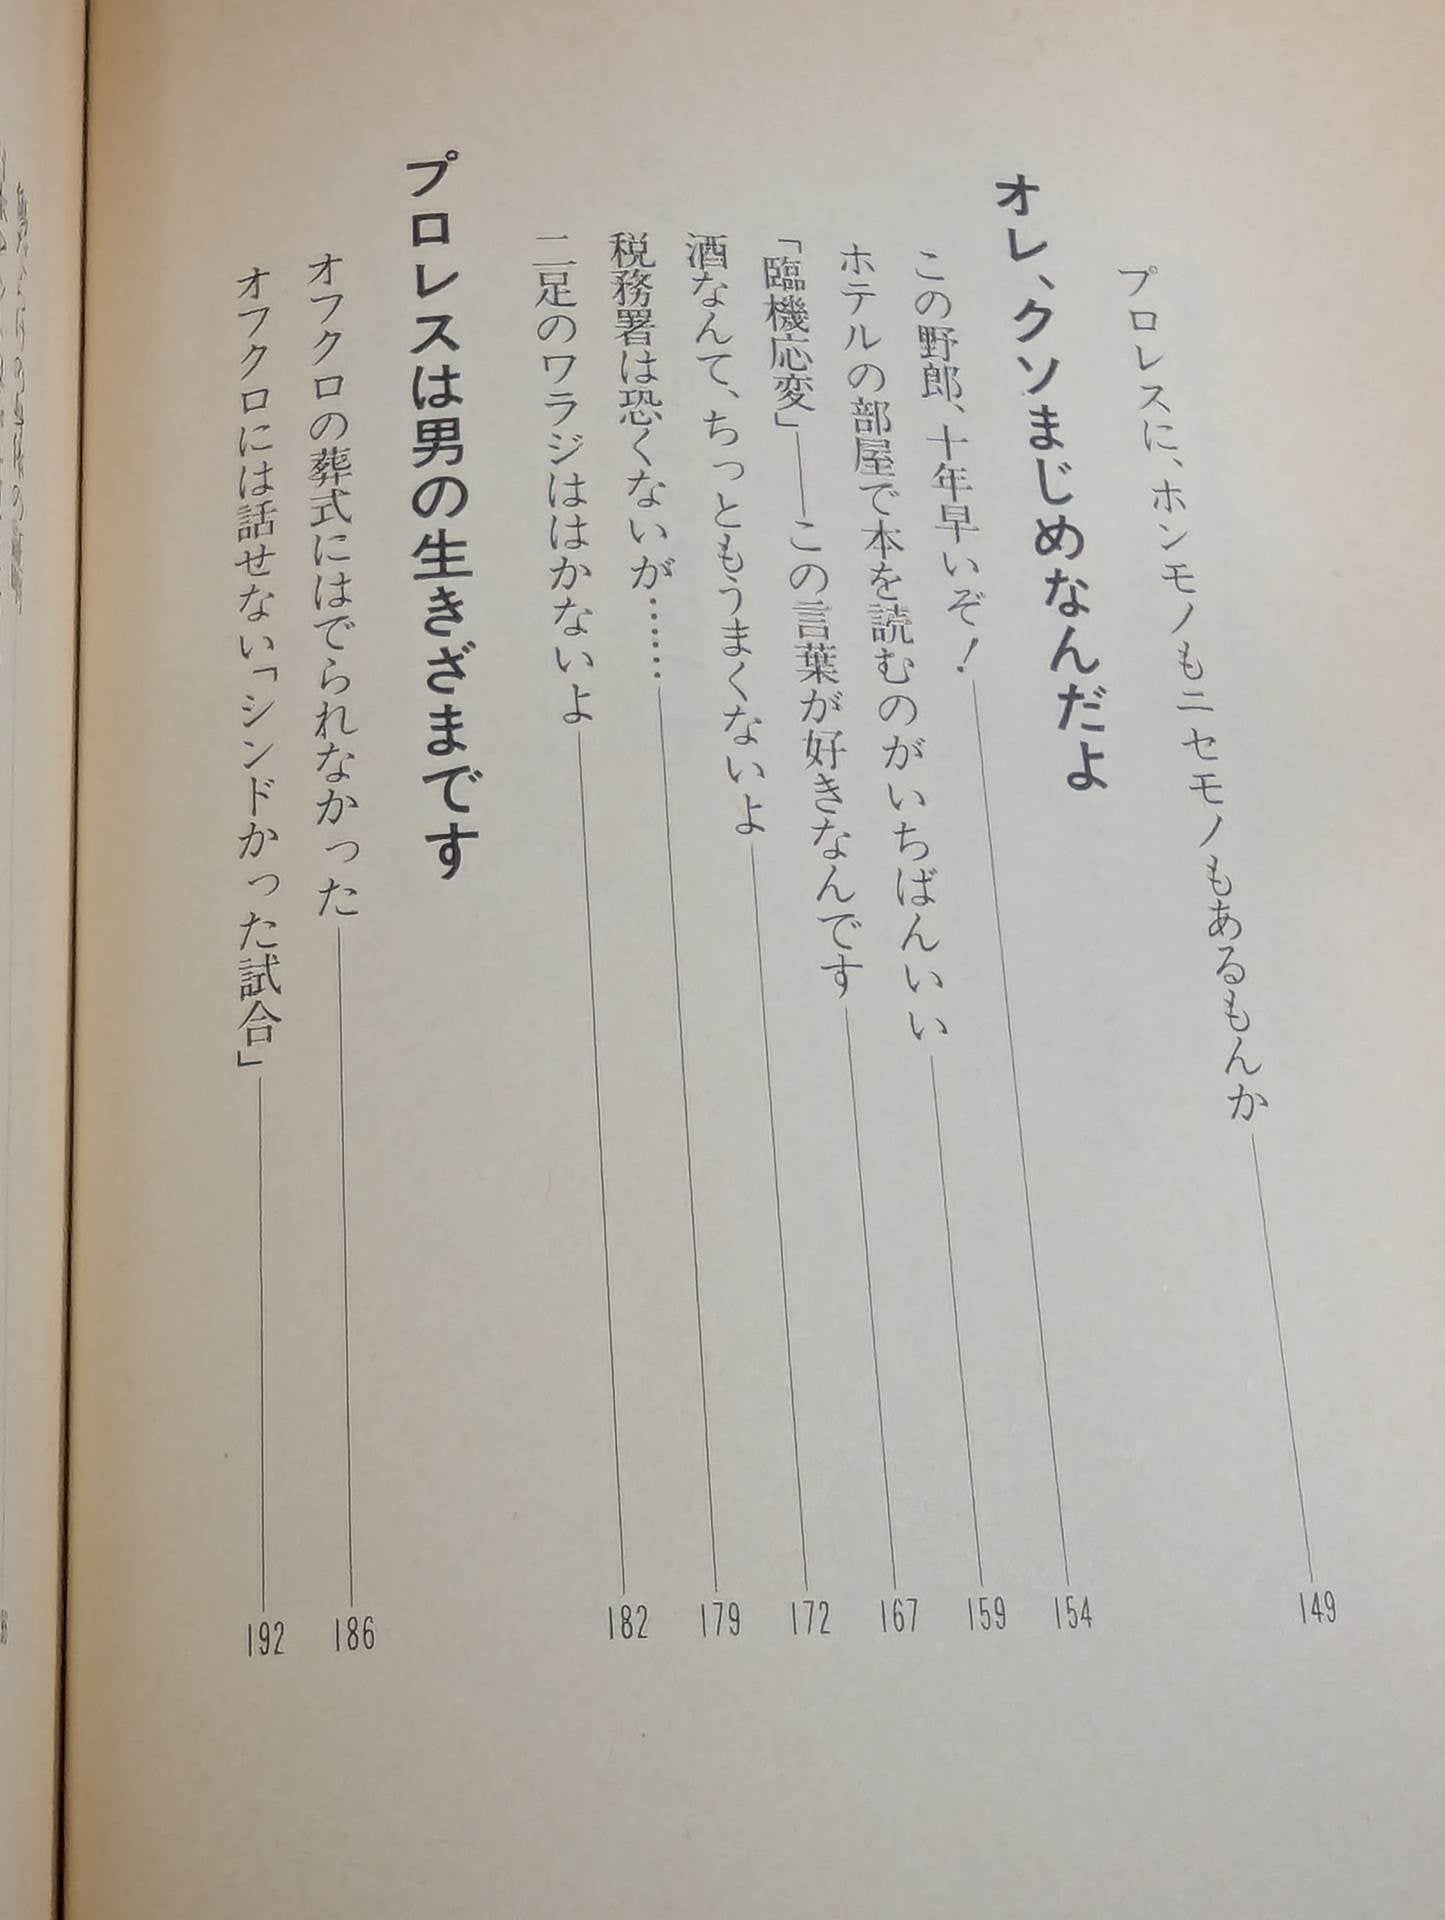 プロレスに、ホンモノもニセモノもあるもんか 149
オレ、クソまじめなんだよ
この野郎、十年早いぞ！ 154
ホテルの部屋で本を読むのがいちばんいい 159
「臨機応変」——この言葉が好きなんです 167
酒なんて、ちっともうまくないよ 172
税務署は恐くないが…… 179
二足のワラジははかないよ 182
プロレスは男の生きざまです
オフクロの葬式にはでられなかった 186
オフクロには話せない「シンドかった試合」 192